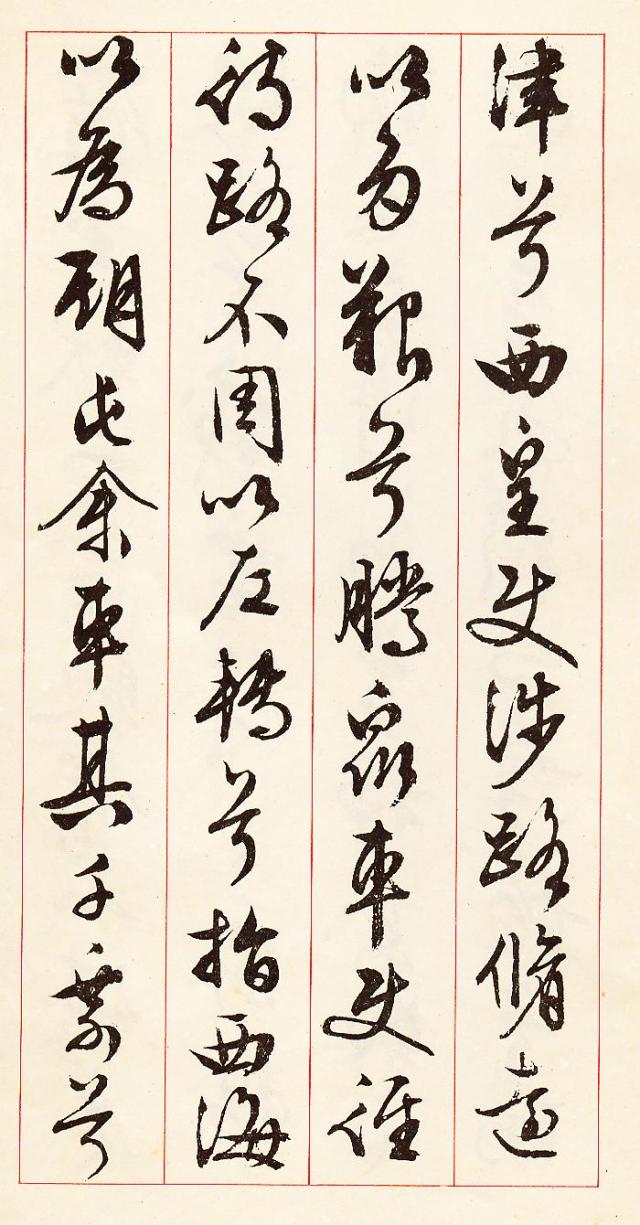 津兮西皇使涉路脩遠
以多艱兮騰眾車使徑
待路不周以左轉兮指西海
以為期屯余車其千乘兮